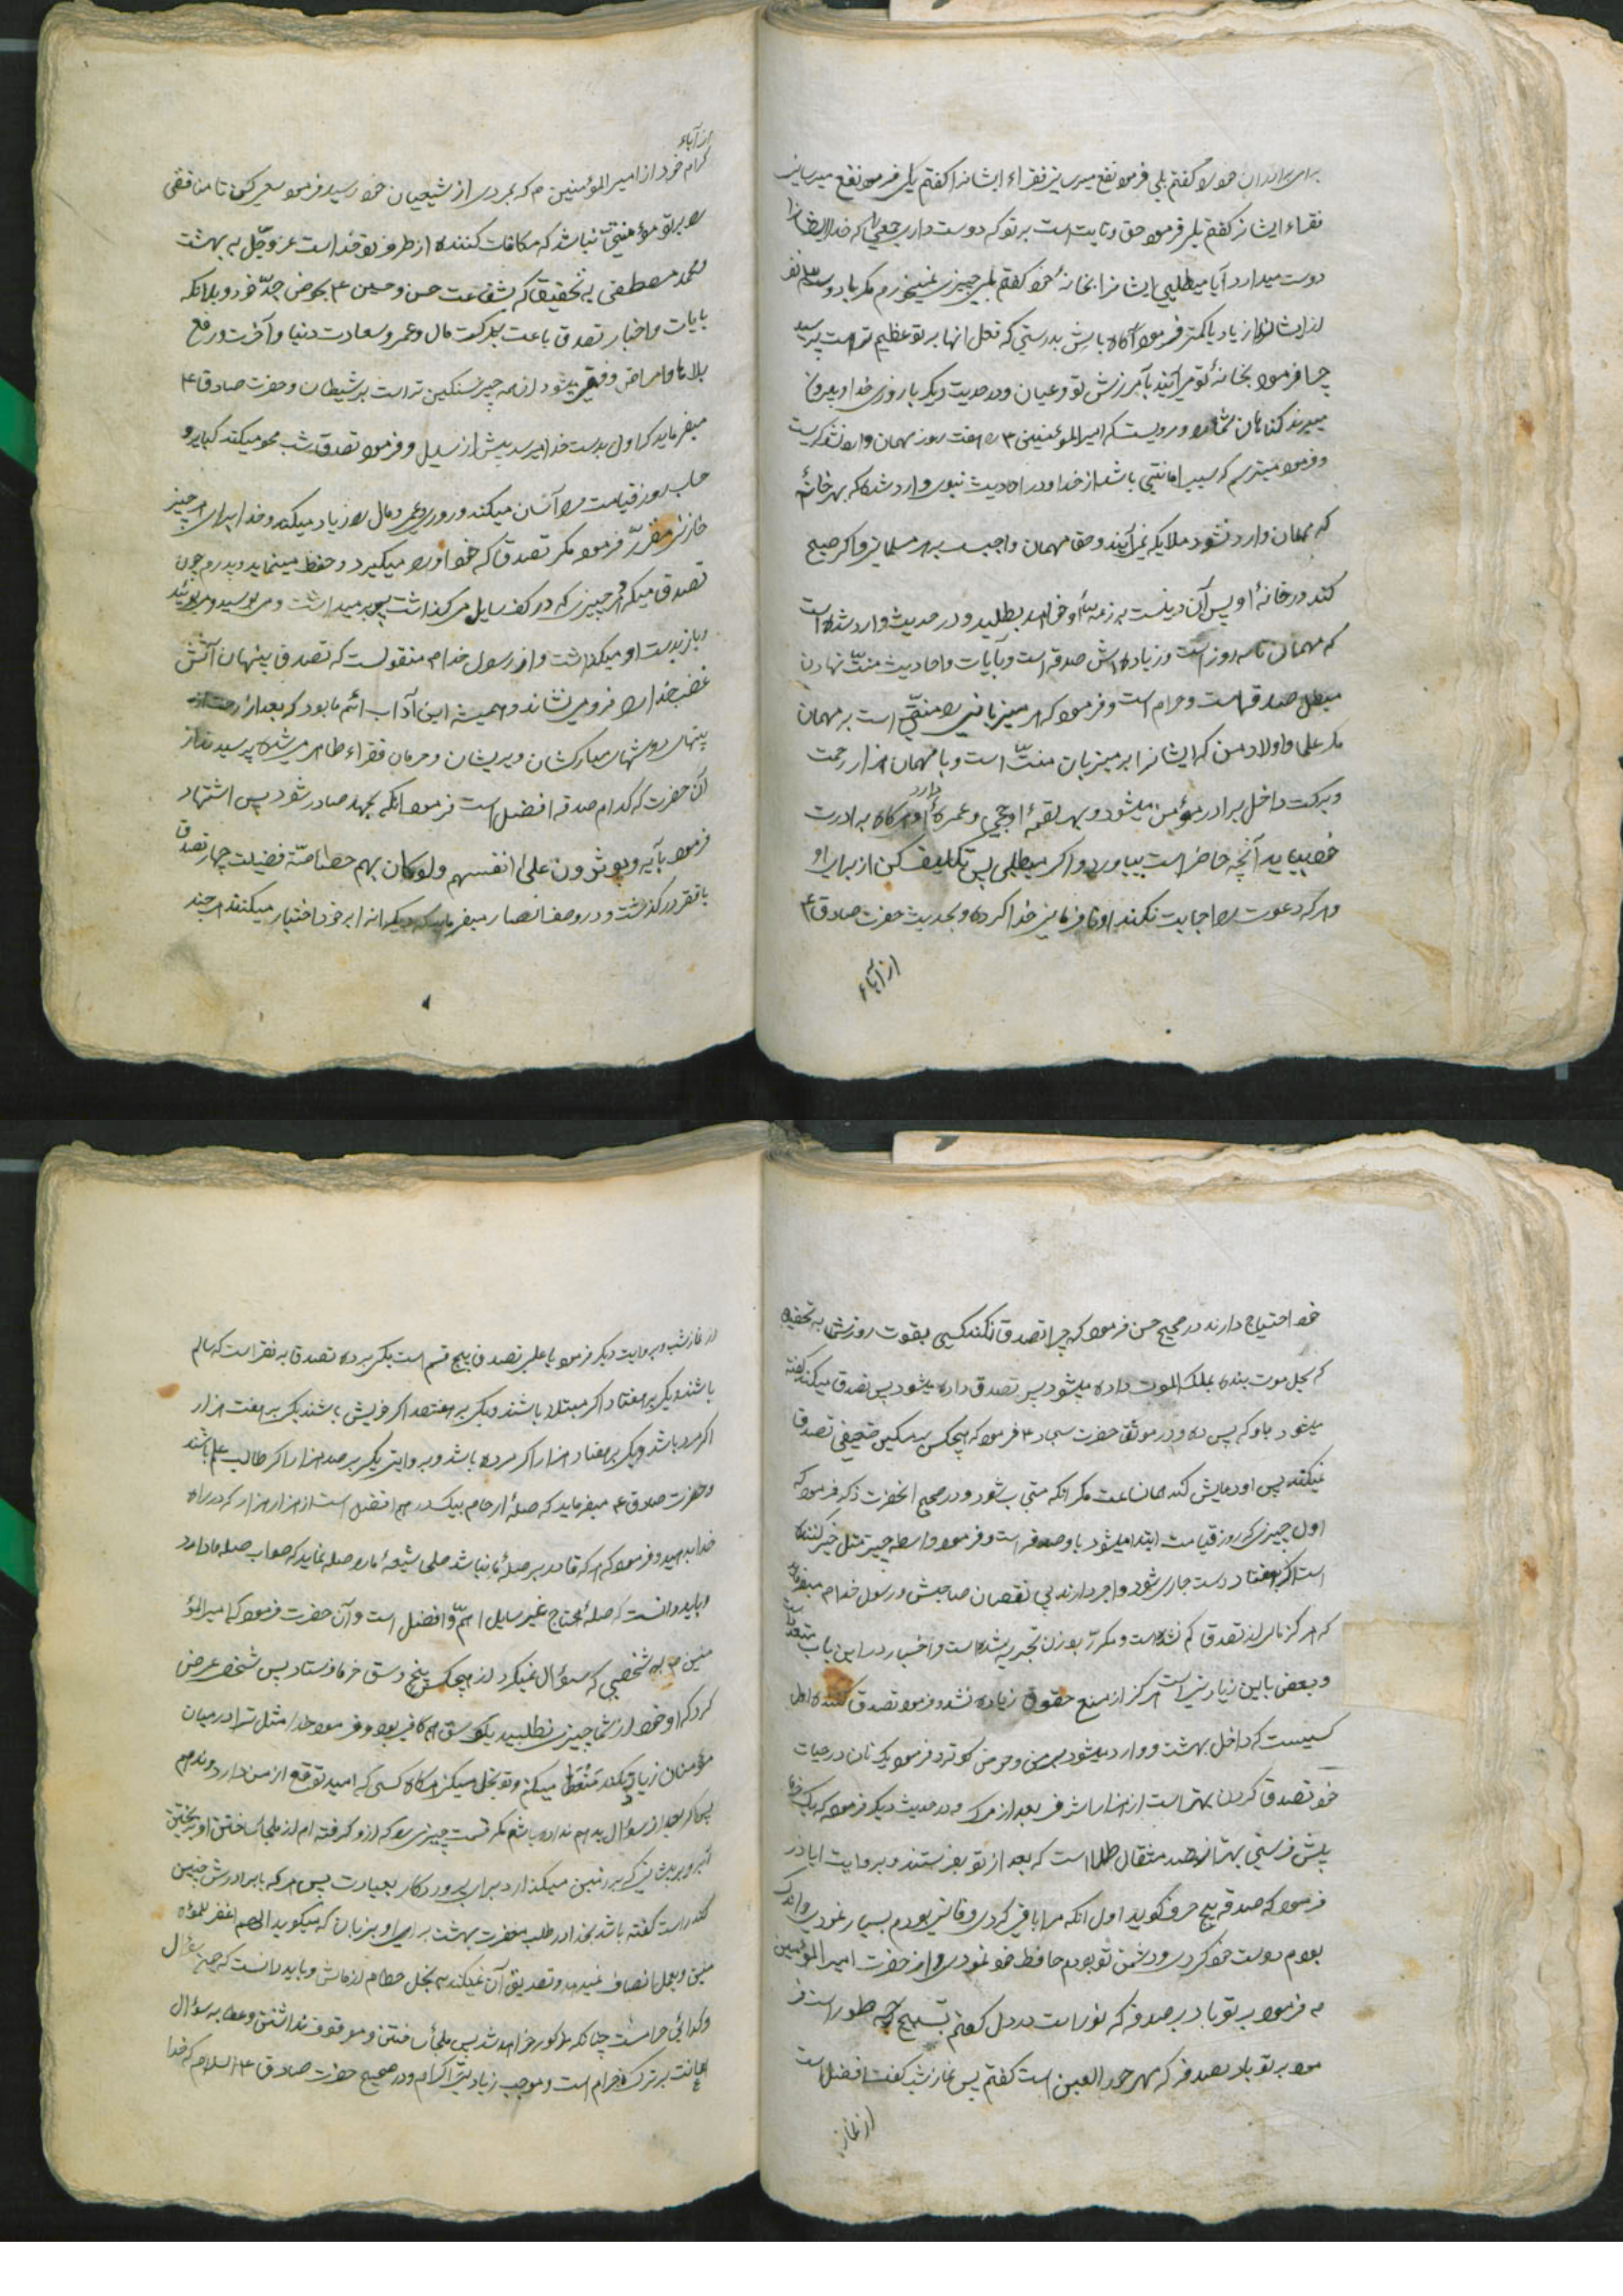 برای برادران خود گفتم بلی فرمود نفع میرسانی فقراء ایشانرا گفتم بلی فرمود نفع میرسانی
فقراء ایشان گفتم بلی فرمود حق و ثابت است بر تو که دوست داری جمعی را که خدا ایشانرا
دوست میدارد آیا میطلبی ایشانرا بخانهٔ خود گفتم بلی چیزی نمیخورم مگر با دو سه نفر
از ایشان یا زیاد یا کمتر فرمود آگاه باش بدرستی که فضل آنها بر تو عظیم تر است پرسید
چرا فرمود بخانهٔ تو می آیند بآمرزش تو و عیال و در حدیث دیگر با روزی خدا و بیرون
میبرند گناهان شما و مرویست که امیر المؤمنین ۳ را هفت روز مهمان وارد نشد گریست
و فرمود میترسم که سبب اهانتی باشد از خدا و در احادیث نبوی وارد شده که بهر خانهٔ
که مهمان وارد نشود ملایکه نمی آیند و حق مهمان واجب بر هر مسلمانی و اگر صبح
کند در خانهٔ او پس آن دینست بر ذمهٔ او خواهد بطلبد و در حدیث وارد شده است
که مهمان تا سه روز است و زیاده اش صدقه است و بآیات و احادیث منّت نهادن
مبطل صدقه است و حرام است و فرمود که هر میزبانی را منّتی است بر مهمان
مگر علی و اولاد من که ایشانرا بر میزبان منّت است و با مهمان هزار رحمت
و برکت داخل برادر مؤمن میشود و بهر لقمهٔ او حجی و عمرهٔ دارد و هرگاه برادرت
خود بیاید آنچه حاضر است بیاور و اگر میطلبی پس تکلیف کن از برای او
و هر که دعوت را اجابت نکند او نافرمانی خدا کرده و بحدیث حضرت صادق ۴
از آباء
از آباء
کرام خود از امیر المؤمنین م که بمردی از شیعیان خود رسید فرمود سعی کن تا منافقی
را بر تو مؤمن منّتی نباشد که مکافات کننده از طرف تو خداست عزّ وجلّ به بهشت
و محمد مصطفی به تحقیق که شفاعت حسن و حسین ۴ بحوض جدّ خود و بدانکه
بآیات و اخبار تصدق باعث برکت مال و عمر و سعادت دنیا و آخرت و رفع
بلاها و امراض و فقر میشود از همه چیز سنگین تر است بر شیطان و حضرت صادق ۴
میفرماید که اول بدست خدا میرسد پیش از سایل و فرمود تصدق شب محو میکند کبایر و
حساب روز قیامت را آسان میکند و روزی و عمر و مال را زیاد میکند و خدا برای هر چیز
خازنی مقرّر فرمود مگر تصدق که خود او را میگیرد و حفظ مینماید و پدرم چون
تصدق میکرد چیزی که در کف سایل می گذاشت پس بر میداشت و می بوسید و می بوئید
و باز بدست او میگذاشت و از رسول خدا م منقولست که تصدق پنهان آتش
غضب خدا را فرو می نشاند و همیشه این آداب ائمّه ما بود که بعد از رحلت
پنهان دوشهای مبارکشان و پریشان و حرمان فقراء ظاهر میشد پرسیدند از
آن حضرت که کدام صدقه افضل است فرمود آنکه بجهد صادر شود پس استشهاد
فرمود بآیه و یوثرون علی انفسهم ولو کان بهم خصاصة فضیلت چهار تصدق
با فقر در گذشت و در وصف انصار میفرماید که دیگرانرا بر خود اختیار میکنند هر چند
خود احتیاج دارند در صحیح حسن فرمود که چرا تصدق نکند کسی بقوت روزش به تحقیق
که بجل موت بنده بملک الموت داده میشود پس تصدق داده میشود پس تصدق میکند گفته
میشود باو که پس ده و در موثق حضرت سجاد ۴ فرمود که هیچکس بر مسکین ضعیفی تصدق
نمیکند پس او دعایش کند همان ساعت مگر آنکه مستجاب شود و در صحیح آنحضرت ذکر فرمود که
اول چیزی که روز قیامت ابتدا میشود باو صدقه است و فرمود واسطه چیز مثل خیر کننده
است اگر بهفتاد دست جاری شود و اجر دارند بی نقصان صاحبش و رسول خدا م میفرماید
که هرگز مالی از تصدق کم نشده است و مکرّر بوزن تجربه شده است و اخبار در این باب متعدد است
و بعض باین زیاد نیز است هرگز از منع حقوق زیاده نشد و فرمود تصدق کننده اول
کسیست که داخل بهشت و وارد میشود بمن و حوض کوثر و فرمود یک نان در حیات
خود تصدق کردن بهتر است از هزار اشرفی بعد از مرگ و در حدیث دیگر فرمود که یک خرما
پیش فرستی بهتر از صد مثقال طلا است که بعد از تو بفرستند و بروایت اباذر
فرمود که صدقه پنج حرف گوید اول آنکه مرا باقی کردی و فانی بودم بسیار نمودی و اندک
بودم دوست خود کردی و دشمن تو بودم حافظ خود نمودی و از حضرت امیر المؤمنین
م فرمود بر تو باد بر صدقه که نور است در دل گفتم تسبیح چه طور است فر
مود بر تو باد بصدقه که مهر حور العین است گفتم پس نماز شب گفت افضل است
از نماز
از نماز شب و بروایت دیگر فرمود یا علی تصدق پنج قسم است یکی بر ده تصدق به فقر است که سالم
باشند و یکی بر هفتاد اگر مبتلا باشند و یکی بر هفتصد اگر خویش باشند یکی بر هفت هزار
اگر مرد باشد و یکی بر هفتاد هزار اگر مرده باشد و بروایت یکی بر صد هزار اگر طالب علم باشند
و حضرت صادق ۴ میفرماید که صلهٔ ارحام بیکدرهم افضل است از هزار هزار که در راه
خدا بدهید و فرمود که هر که قادر بر صلهٔ ما نباشد صلحای شیعهٔ ما را صله نماید که صواب صله ما دارد
و باید دانست که صلهٔ محتاج غیر سایل اهمّ و افضل است و آن حضرت فرمود که امیر المؤ
منین م به شخصی که سؤال نمیکرد از هیچکس پنج وسق خرما فرستاد پس شخصی عرض
کرد که او خود از شما چیزی نطلبید یکوسق هم کافی بود و فرمود خدا مثل ترا در میان
مؤمنان زیاد نکند من عطا میکنم و تو بخل میکنی هرگاه کسی که امید توقع از من دارد و ندهم
پس اگر بعد از سؤال بدهم نداده باشم مگر قیمت چیزی را که از او گرفته ام از ملجأ ساختن او بریختن
آبرو و پیشانی که بر زمین میگذارد برای پروردگار بعبادت پس هر که با برادرش چنین
کند راست گفته باشد بخدا در طلب مغفرت بهشت برای او بزبان که میگوید اللهم اغفر للمؤ
منین و بعمل انصاف نمیدهد و تصدیق آن نمیکند به بخل حطام از مالش و باید دانست که سؤال
و گدائی حرامست چنانکه مذکور خواهد شد پس ملجأ ساختن و موقوف نداشتن و عطا به سؤال
اهانت بر ترک حرام است و موجب زیادتی اکرام و در صحیح حضرت صادق ۴ السلام که خدا